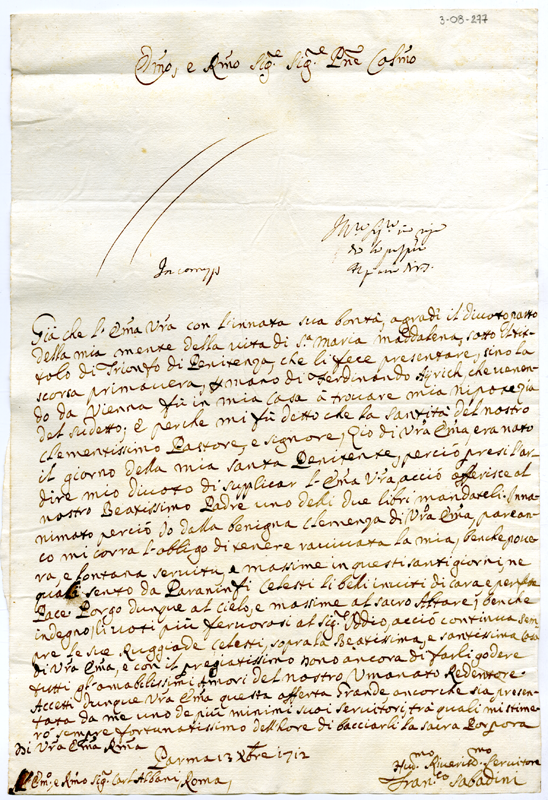 3-08-277
Emo, e Rmo Sig.e Sig.e Pne Colmo
In comp
Già che l'Ema Vra con l'innata sua bontà, agradì il divoto parto
della mia mente della vita di S.ta Maria Maddalena, sotto il tit-
tolo di Trionfo di Penitenza, che li fece presentare, sino la
scorsa primavera, per mano di Ferdinando che venen-
do da Vienna fù in mia casa à trovare mia nipote Zia
del sudetto; E perche mi fù detto che la Santità del nostro
Clementissimo Pastore, e Signore, Zio di Vra Ema, era nato
il giorno della mia Santa Penitente, perciò presi l'ar-
dire mio divoto di suplicar l'Ema Vra acciò offerisce al
nostro Beatissimo Padre uno delli due libri mandateli. Inna-
nimato perciò Io dalla benigna Clemenza di Vra Ema, parean-
co mi corra l'obligo di tenere ravivata la mia, benche pove-
ra, e lontana servitù, e massime in questi santi giorni, ne
quali sento da Paraninfi Celesti li bili inviti di cara e perfetta
Pace Porgo dunque al Cielo, e massime al Sacro Altare, benche
indegno, li voti più fervorosi al Sig.r Iddio, acciò continua sem-
pre le sue Ruggiade Celesti, sopra la Beatissima, e Santissima
di Vra Ema, e con il pregiatissimo dono ancora di farli godere
tutti gl'amabilissimi Amori del nostro Umanato Redentore.
Accetti dunque Vra Ema questa offerta grande ancorche sia presen-
tata da me uno de più minimi suoi servitori, trà quali mi stime-
rò sempre fortunatissimo dell'onore di bacciarli la sacra Porpora
Di Vra Ema Rma
Parma 13 Xbre 1712
Emo e Rmo Sig.r Card Albani, Roma,
Hu.mo Riverit.mo Servitore
Fran.co Sabadini